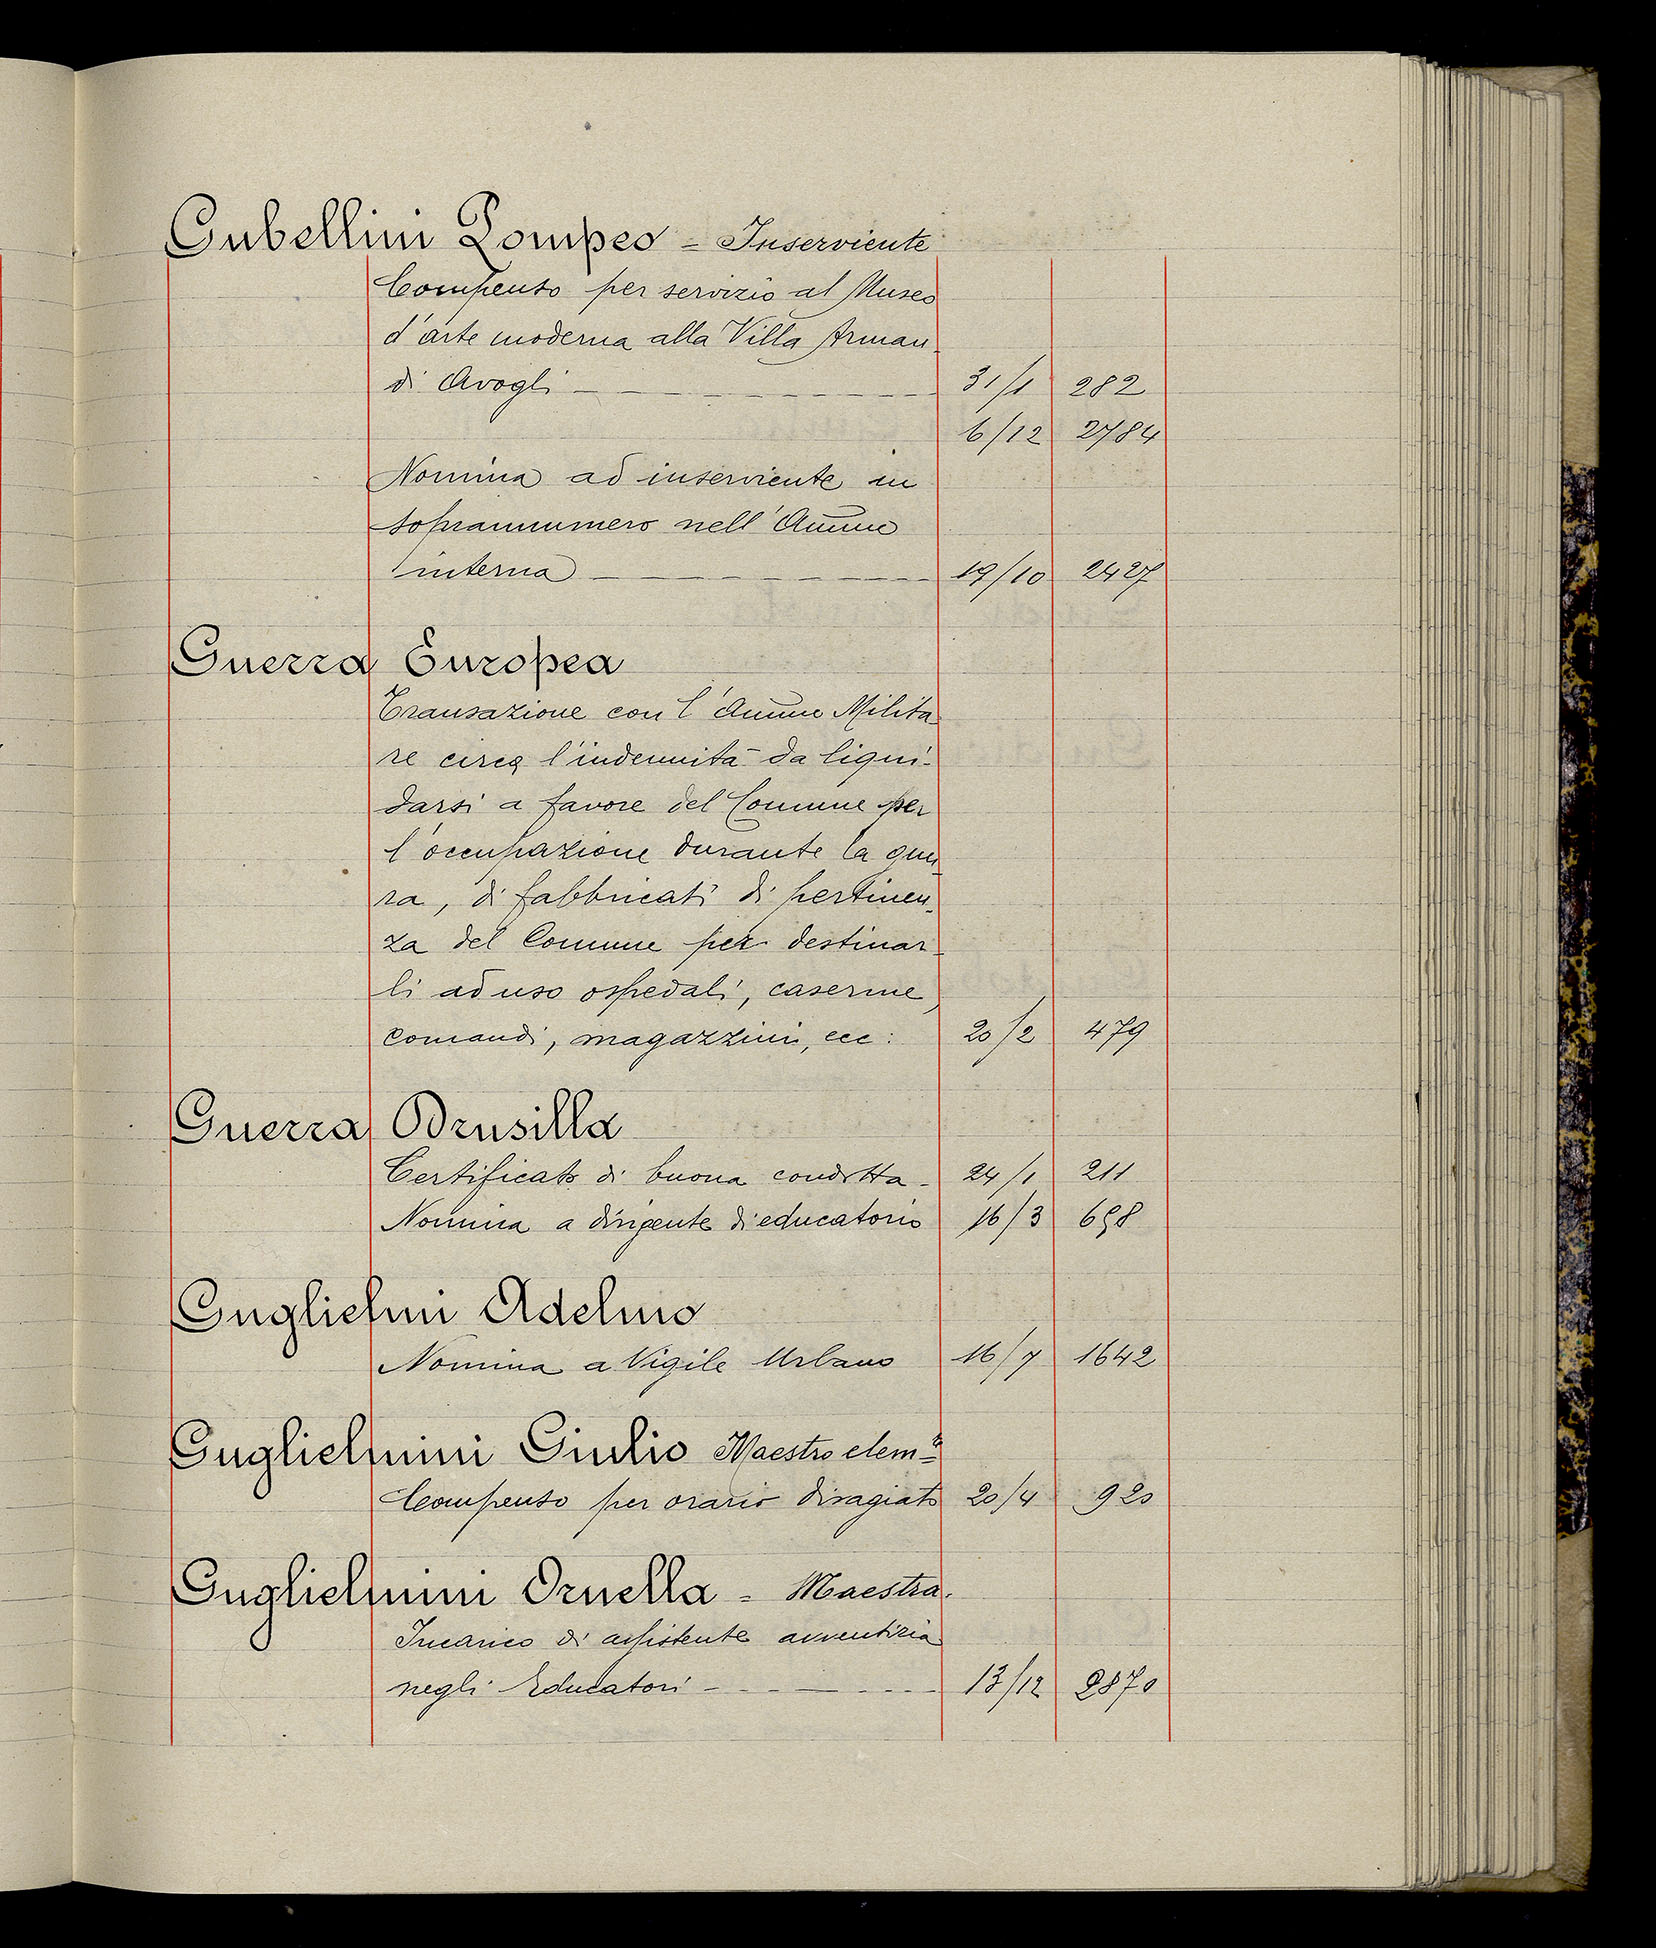 Gubellini Pompeo = Inserviente
Compenso per servizio al Museo
d'arte moderna alla Villa Arman-
di Avogli — 31/1 282
6/12 2784
Nomina ad inserviente in
soprannumero nell'Amme
interna — 19/10 2427
Guerra Europea
Transazione con l'Amme Milita-
re circa l'indennità da liqui-
darsi a favore del Comune per
l'occupazione durante la guer-
ra, di fabbricati di pertinen-
za del Comune per destinar-
li ad uso ospedali, caserme,
comandi, magazzini, ecc: 20/2 479
Guerra Drusilla
Certificato di buona condotta - 24/1 211
Nomina a dirigente di educatorio 16/3 658
Guglielmi Adelmo
Nomina a Vigile Urbano 16/7 1642
Guglielmini Giulio Maestro elemre
Compenso per orario disagiato 20/4 920
Guglielmini Ornella = Maestra.
Incarico di assistente avventizia
negli Educatori — 13/12 2870